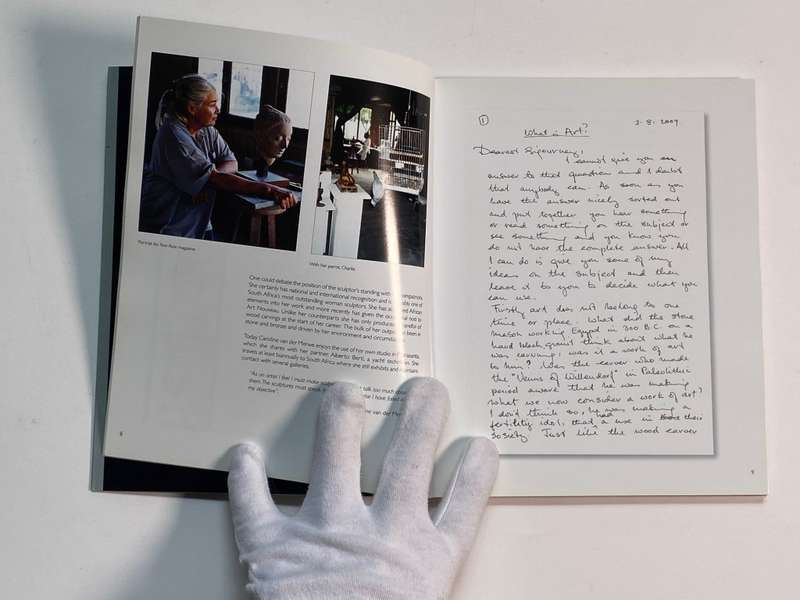 Portrait for Tone Plate magazine
With her parrot, Charlie
One could debate the position of the sculptor's standing with
She certainly has national and international recognition and is one of
South Africa's most outstanding woman sculptors. She has African
elements into her work and more recently has given the occasional nod to
Art Nouveau. Unlike her counterparts she has only produced a handful of
wood carvings at the start of her career. The bulk of her output has been in
stone and bronze and driven by her environment and
Today Caroline van der Merwe enjoys the use of her own studio in
which she shares with her partner, Alberto Berti, a yacht
travels at least biannually to South Africa where she still exhibits and maintains
contact with several galleries.
"As an artist I feel I must make talk too much about
them. The sculptures must speak else I have failed in
my objective".
van der
8
1
2. 8. 2009
What is Art?
Dearest Sigourney,
I cannot give you an
answer to that question and I doubt
that anybody can. As soon as you
have the answer nicely sorted out
and put together you hear something
or read something on the subject or
see something and you know you
do not have the complete answer. All
I can do is give you some of my
ideas on the subject and then
leave it to you to decide what you
can use.
Firstly art does not belong to one
time or place. What did the stone
mason working Egypt in 300 B.C. on a
hard black granit think about what he
was carving; was it a work of art
to him? Was the carver who made
the "Venus of Willendorf" in Paleolithic
period aware that he was making
what we now consider a work of art?
I don't think so, he was making a
fertility idol, that had a use in their
society. Just like the wood carver
9